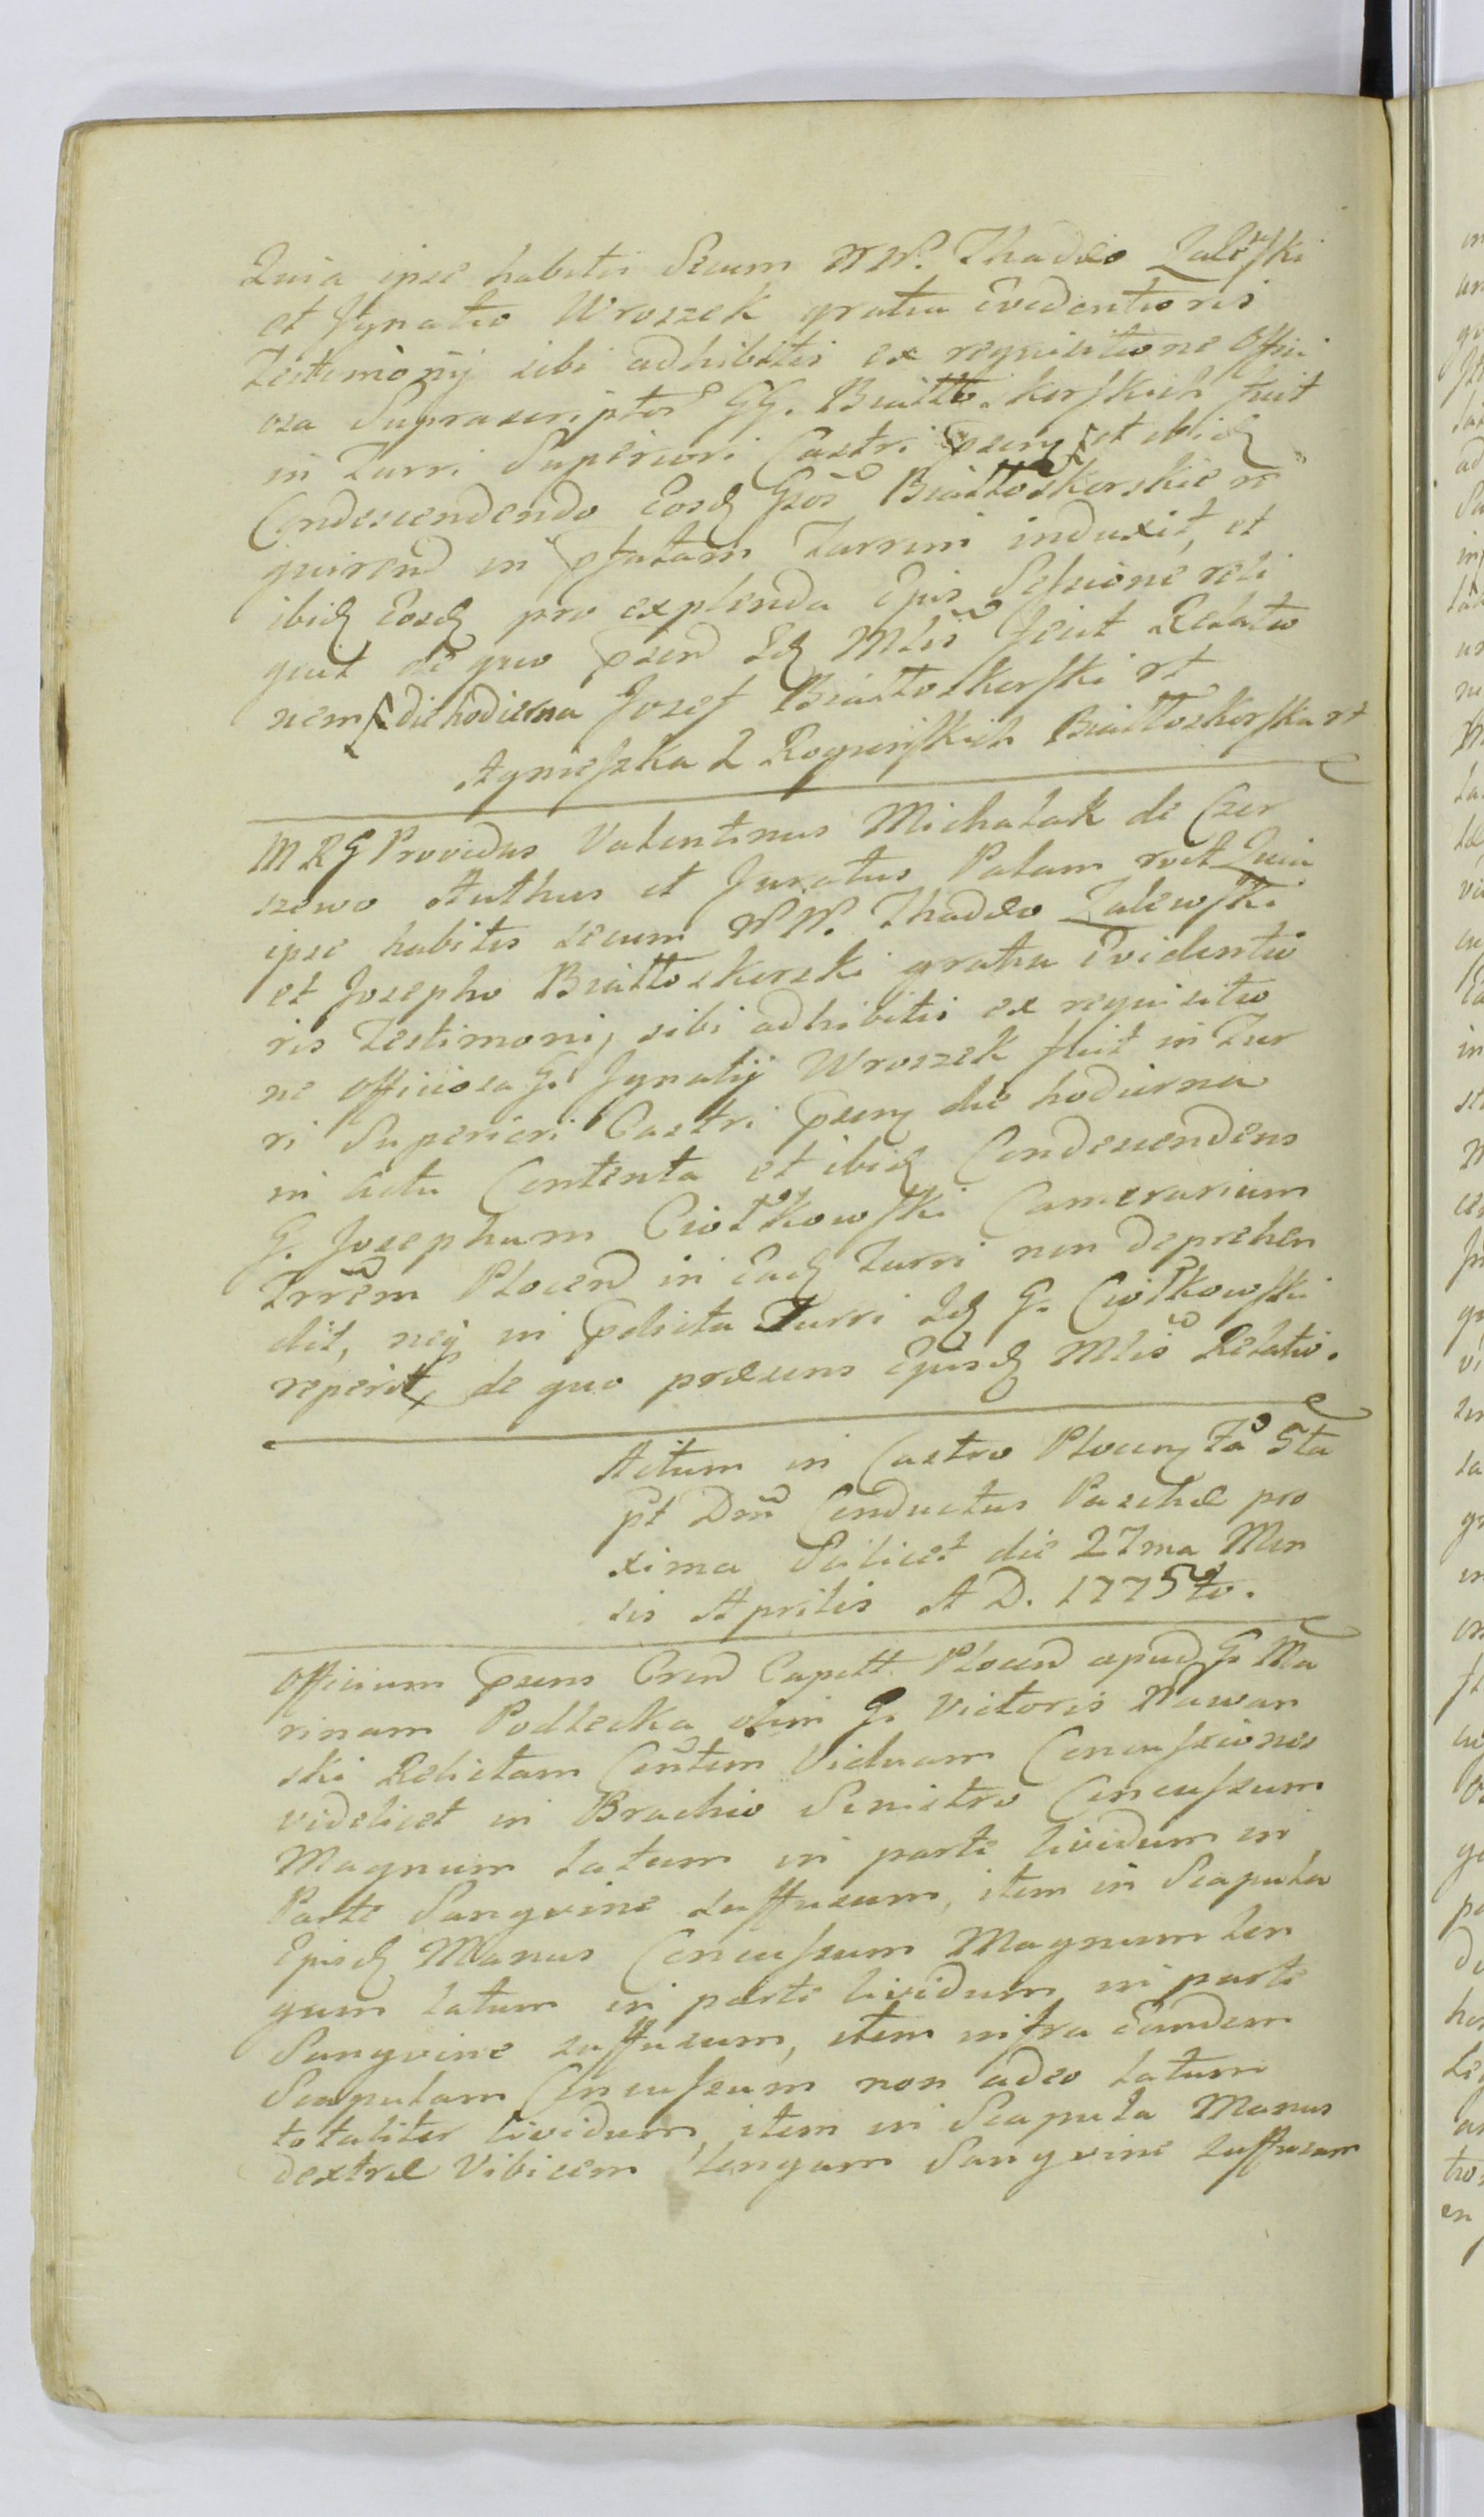 Quia ipse habitis Secum NN. Thadeo Zalewski
et Ignatio Wroszek gratia Evidentioris
Testimonij sibi adhibitis ex requisitione Offici
osa Suprascriptor GG. Białłoskorskich fuit
in Turri Superiori Castri Psenȝ et ibidȝ
Condescendendo Eosdȝ Gsos Białłoskorskie
in Pfatam Turrim induxit, et
ibidȝ Eosdȝ pro explenda Ejus Sessione reli
quit de quo Psens Idȝ Mlis fecit Relatio
nem die hodierna Josef Białłoskorski rt
Agnieszka Z Roguskich Białłoskorska rt
M R G Providus Valentinus Michalak de Czer
szewo Authus et Juratus Palam rvit Quia
ipse habitis secum NN. Thadeo Zalewski
et Josepho Białłoskorski gratia Evidentio
ris Testimonij sibi adhibitis ex requisitio
ne officiosa G. Ignatij Wroszek fuit in Tur
ri Superiori Castri Psenȝ die hodierna
in Actu Contenta et ibidȝ Condescendens
G. Josephum Ciołkowski Camerarium
Trrem Plocen in Eadȝ Turri non deprehen
dit, neq in Pdicta Turri Idȝ G. Ciołkowski
reperit, de quo praesens Ejusdȝ Mlis Relatio.
Actum in Castro Plocenȝ Fa 5ta
pt Dm Conductus Paschae pro
xima Scilicet die 27ma Men
sis Aprilis A D. 1775to.
Officium Psens Cren Capitt Plocen apud G. Ma
rinam Podlecka olim G. Victoris Nawan
ski Relictam Centem Viduam Concussiones
videlicet in Brachio Sinistro Concussum
Magnum latum in parte lividum in
Parte Sangvine suffusum, item in Scapula
Ejusdȝ Manus Concussum Magnum lon
gum latum in parte lividum in parte
Sangvine suffusum, item infra Eandem
Scapulam Concussum non adeo latum
totaliter lividum, item in Scapula Manus
dextrae Vibicem longam Sangvine suffusam